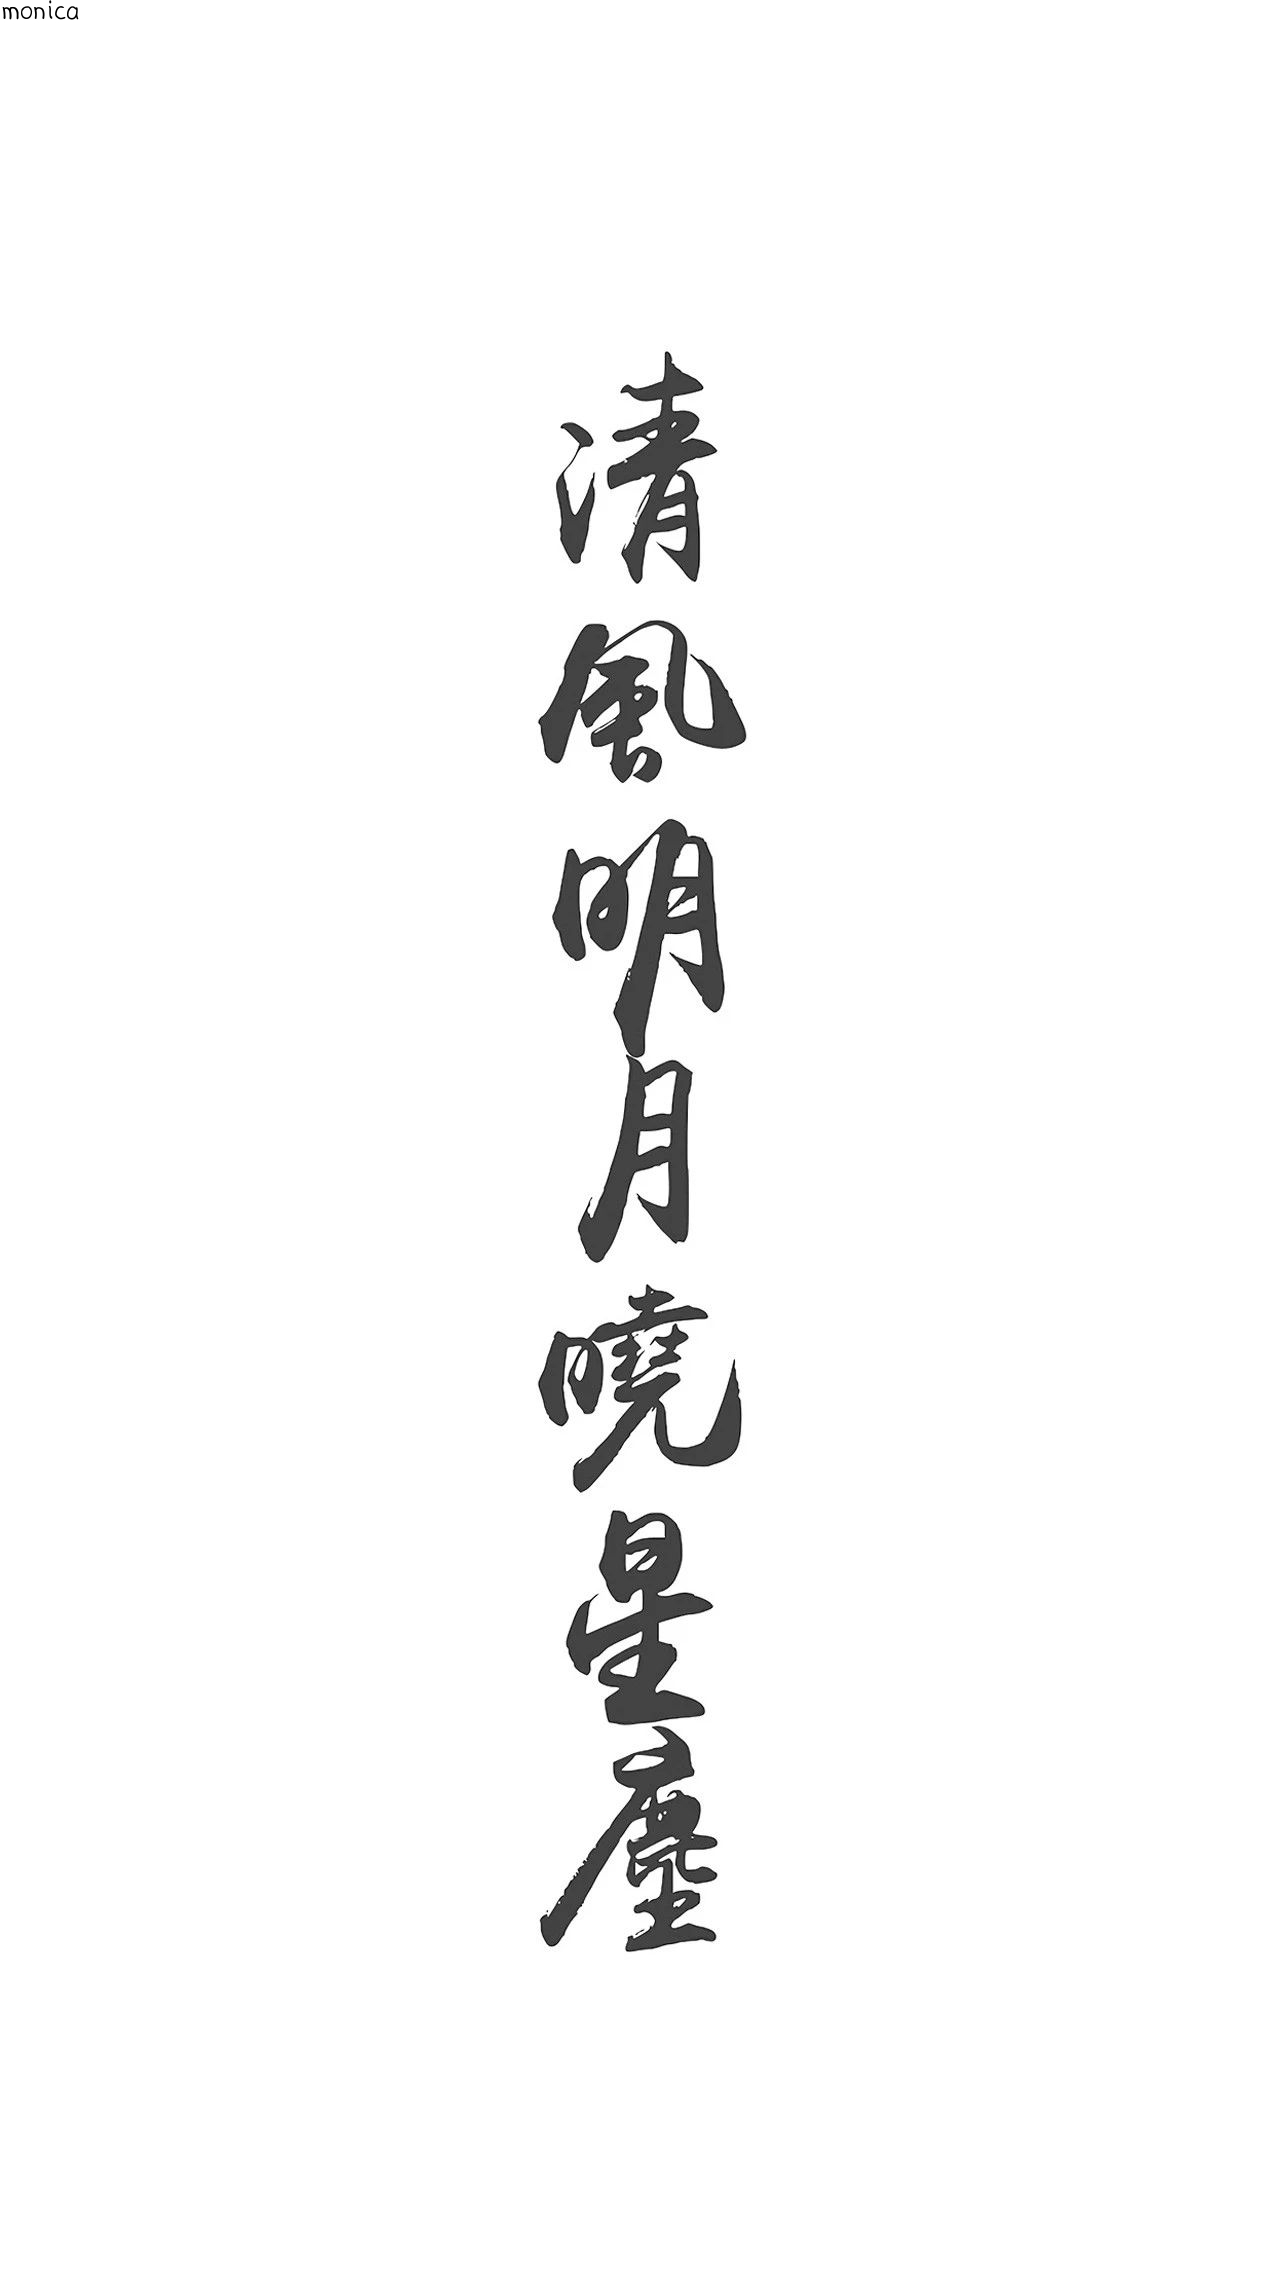 monica
清風明月曉星塵